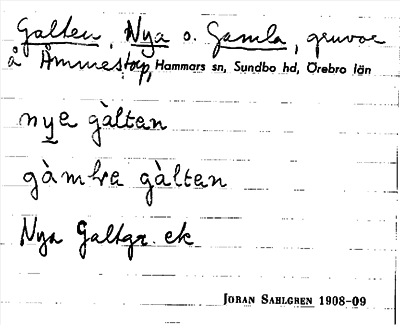 Galten, Nya o. Gamla, gruvor
å Åmmestorp, Hammars sn, Sundbo hd, Örebro län
nye gàltan
gàmbe gàltan
Nya Galtgr. ek.
JORAN SAHLGREN 1908-09